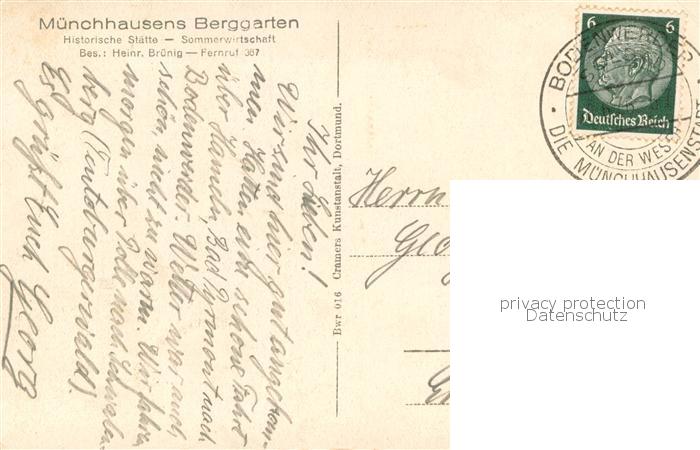 Münchhausens Berggarten
Historische Stätte – Sommerwirtschaft
Bes.: Heinr. Brünig – Fernruf 367
Ihr Lieben!
Wir sind hier gut angekom-
men. Hatten eine schöne Fahrt
über Hameln, Bad Pyrmont nach
Bodenwerder. Wetter war auch
schön, nicht zu warm. Wir fahren
morgen über Polle nach Schwalen-
berg (Teutoburgerwald).
Es grüßt Euch Georg
Bwr 016 Cramers Kunstanstalt, Dortmund.
Herrn
Georg
6 6
Deutsches Reich
BODENWERDER
AN DER WESER
DIE MÜNCHHAUSENSTADT
privacy protection
Datenschutz